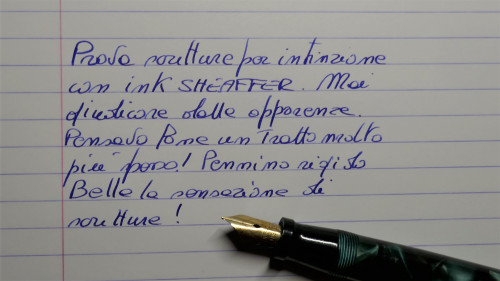 Prova scrittura per intinzione
con ink SHEAFFER. Mai
giudicare dalle apparenze.
Pensavo fosse un Tratto molto
più grosso! Pennino rigido
Bella la sensazione di
scrittura!